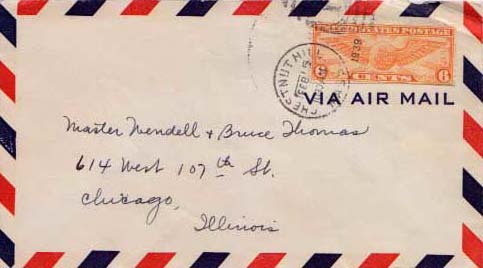 U.S. POSTAGE
6 CENTS 6
CHESTNUT HILL
MASS.
1939
1939
VIA AIR MAIL
Master Wendell & Bruce Thomas
614 West 107th St.
Chicago,
Illinois